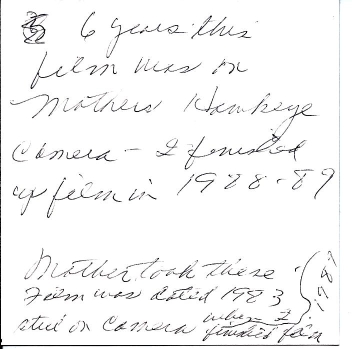 6 years this
film was on
Mothers Hawkeye
Camera - I finished
up film in 1988-89
Mother took these
Film was dated 1983
still on camera when I
finished film
1989